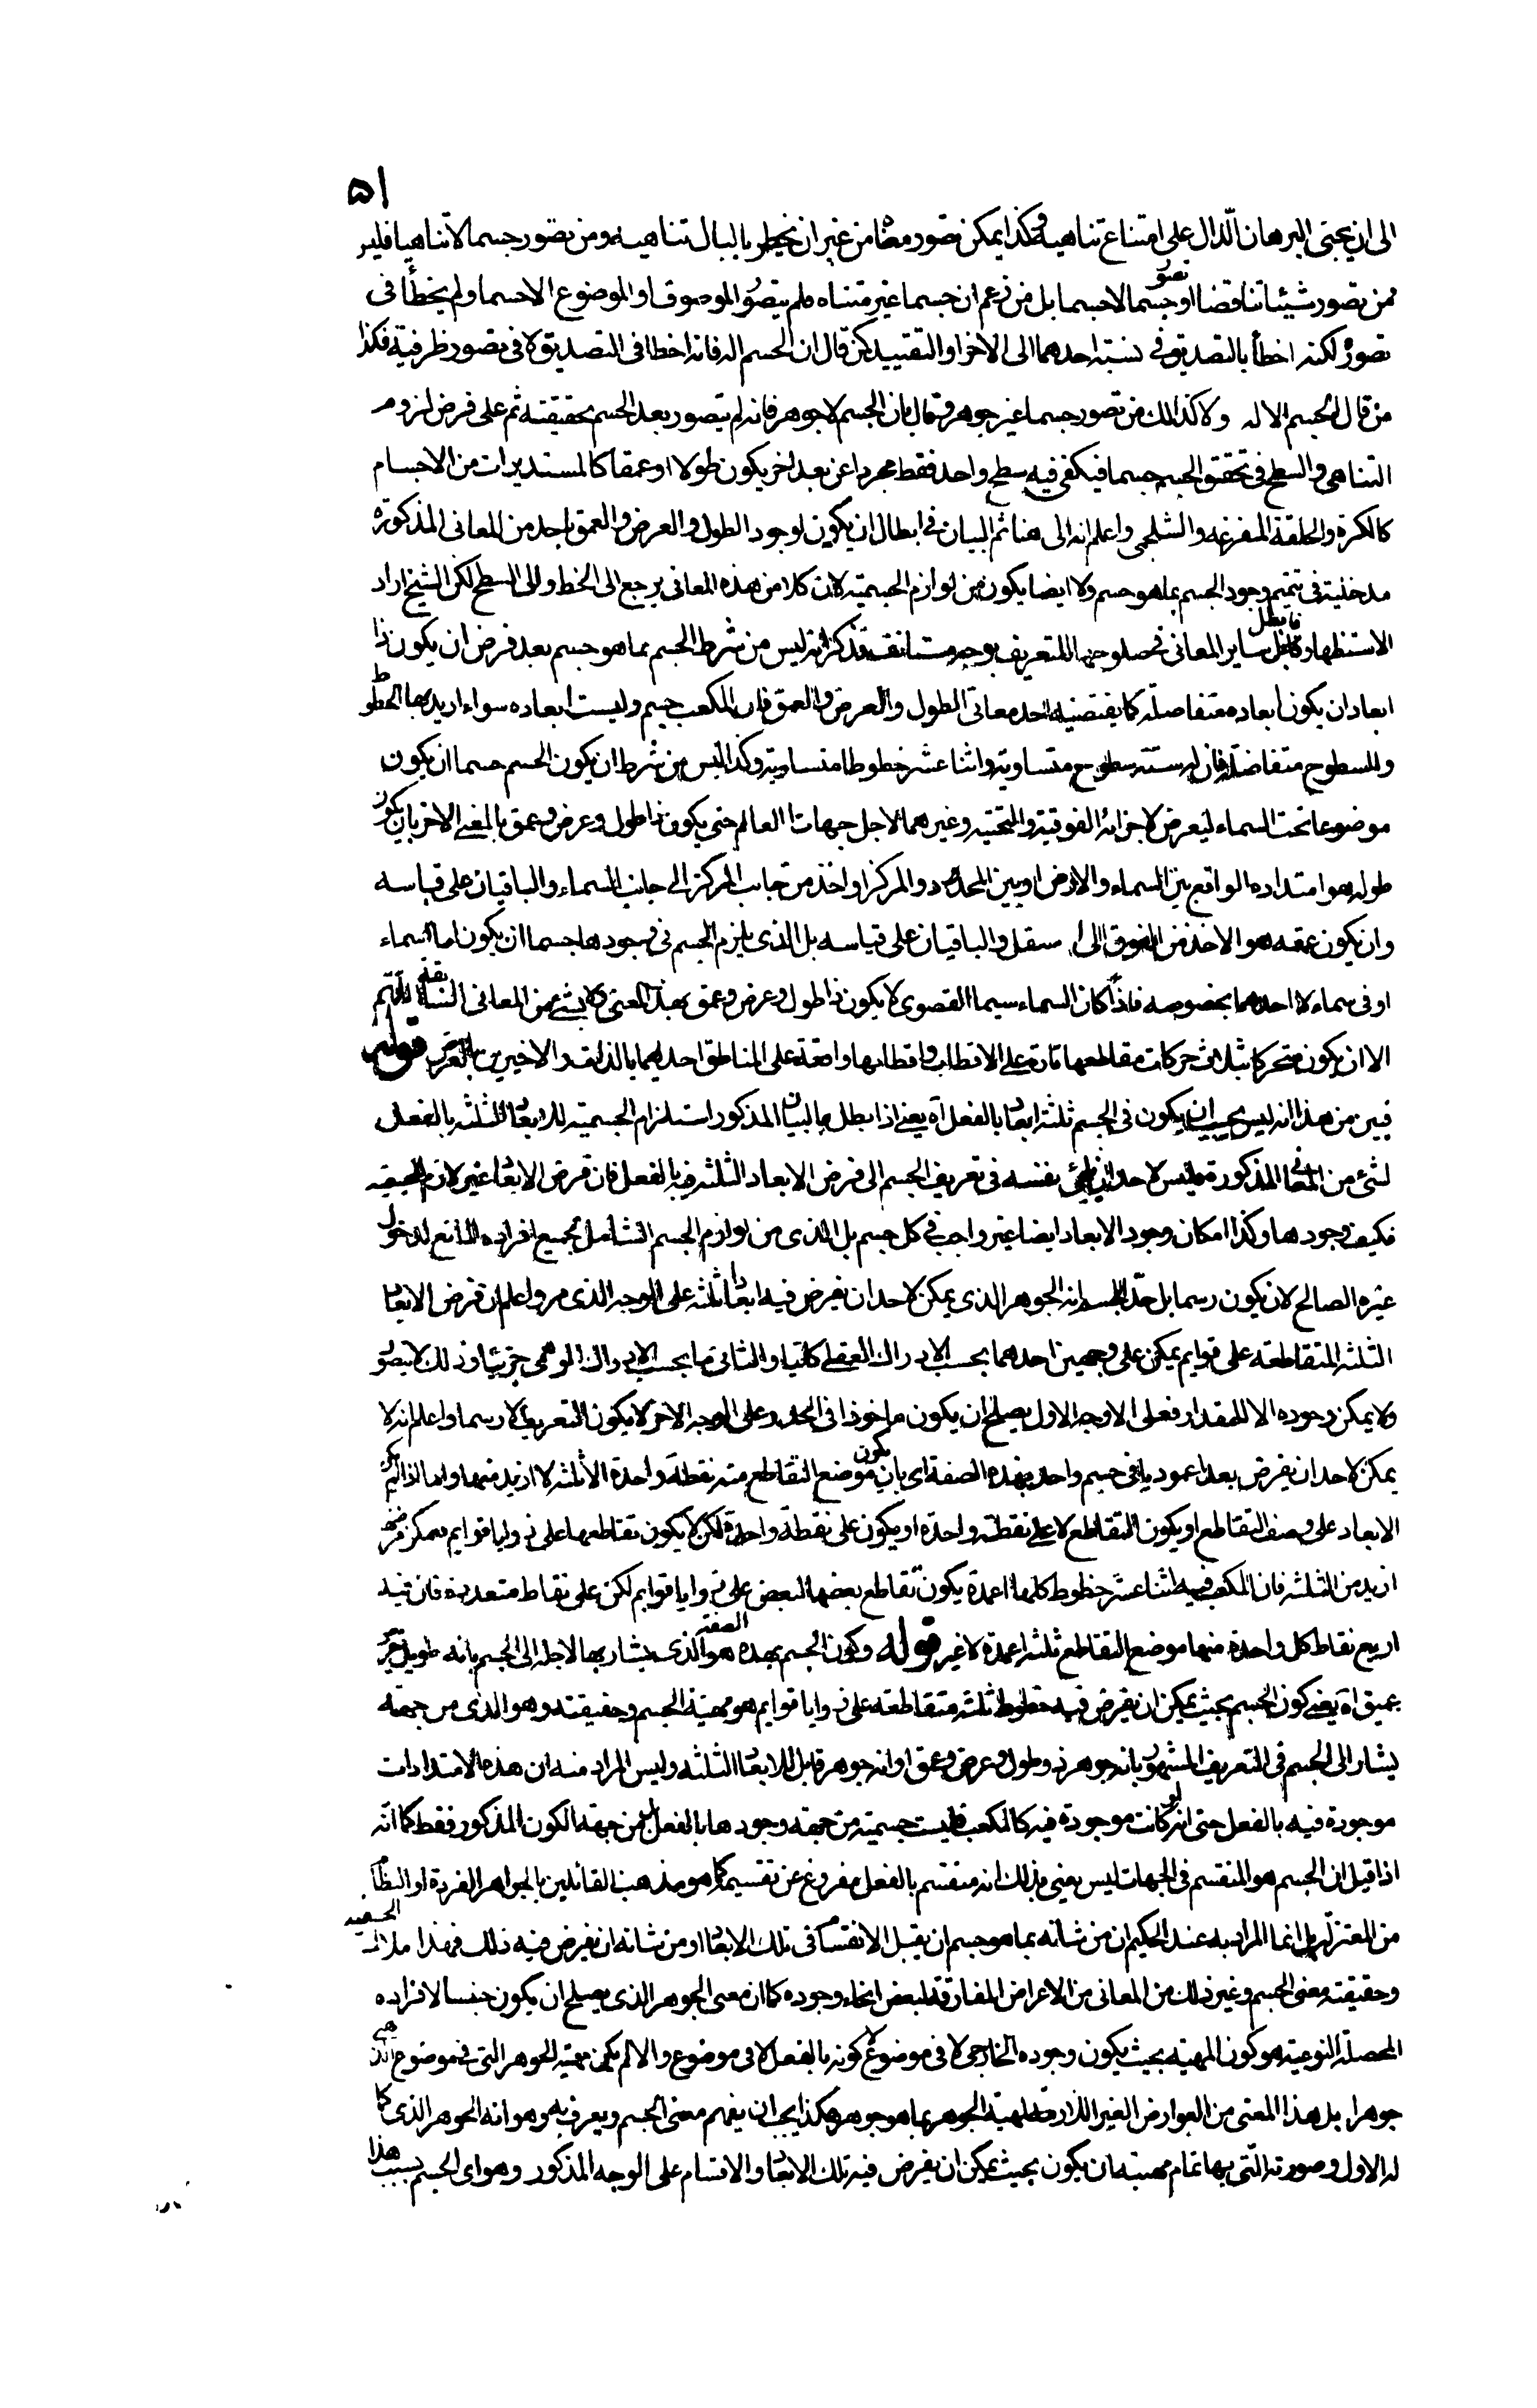 ٥١
الى ان يجتى البرهان الدّال على امتناع تناهيه وهكذا يمكن تصور معناه من غير ان يخطر بالبال تناهيه ومن تصور جسما لا متناهيا فليس
فمن تصور شيئا تناقضا او تصور جسما لاجسما بل من زعم ان جسما غير متناه فلم يتصور الموصوف او الموضوع الا جسما ولم يخطأ فى
تصوره لكنه اخطأ بالتصديق فى نسبة احدهما الى الاخر او التقييد كمن قال ان الجسم اله فانه اخطا فى التصديق لا فى تصور ظرفيه فكذا
من قال الجسم الا له ولا كذالك من تصور جسما غير جوهر وقال بان الجسم لا جوهر فانه لم يتصور بعد الجسم بحقيقته ثم على فرض لزوم
التناهى والسطح فى تحقق الجسم جسما فيكفى فيه سطح واحد فقط مجردا عن بعد اخر يكون طولا او عمقا كالمستديرات من الاجسام
كالكرة والحلقة المفرغه والشلجمى واعلم انه الى هنا تم البيان فى ابطال ان يكون لوجود الطول والعرض والعمق باحد من المعانى المذكورة
مدخلية فى تتميم وجود الجسم بما هو جسم ولا ايضا يكون من لوازم الجسميّة لان كلا من هذه المعانى يرجع الى الخط والى السطح لكن الشيخ اراد
الاستظهار فابطل ساير المعانى فى صلوحها للتعريف بوجه مستانف فذكر انه ليس من شرط الجسم بما هو جسم بعد فرض ان يكون ذا
ابعاد ان يكون ابعاده متفاضلة كما يقتضيه احد معانى الطول والعرض والعمق فان المكعب جسم وليست ابعاده سواء اريد بها الخطوط
والسطوح متفاضلة فان له ستة سطوح متساوية واثنا عشر خطوطا متساوية وكذا ليس من شرط ان يكون الجسم جسما ان يكون
موضوعا تحت السماء ليعرض لاجزائه الفوقية والتحتيه وغيرهما لاجل جهات العالم حتى يكون ذا طول وعرض وعمق بالمعنى الاخر بان يكون
طوله هو امتداده الواقع بين السماء والارض او بين المحدد والمركز او اخذ من جانب المركز الى جانب السماء والباقيان على قياسه
وان يكون عمقه هو الاخذ من الفوق الى اسفل والباقيان على قياسه بل الذى يلزم الجسم فى وجودها جسما ان يكون اما سماء
او فى سماء لا احدهما بخصوصه فاذا كان السماء سيما القصوى لا يكون ذا طول وعرض وعمق بهذا المعنى ولا بشئ من المعانى السابقة اللهم
الا ان يكون متحركا بثلث حركات مقاطعها تارة على الاقطاب واقطابها واقعة على المناطق احدیهما بالذات والاخيرين بالعرض قوله
فبين من هذا انه ليس يجب ان يكون فى الجسم ثلثة ابعاد بالفعل آه يعنى اذا بطل بالبيان المذكور استلزام الجسمية للابعاد الثلثه بالفعل
لشئ من المعانى المذكورة فليس لاحد ان يلجئ نفسه فى تعريف الجسم الى فرض الابعاد الثلثه فيه بالفعل فان فرض الابعاد غير لازم للجسميه
فكيف وجودها وكذا امكان وجود الابعاد ايضا غير واجب فى كل جسم بل الذى من لوازم الجسم الشامل لجميع افراده المانع لدخول
غيره الصالح لان يكون رسما بل حدّا للجسم انه الجوهر الذى يمكن لاحد ان يفرض فيه ابعادا ثلثه على الوجه الذى مر واعلم ان فرض الابعاد
الثلثه المتقاطعه على قوايم يمكن على وجهين احدهما بحسب الادراك العقلى كلّيا والثانى ما بحسب الادراك الوهمى جزئيا وذلك لا يتصور
ولا يمكن وجوده الا للمقدار فعلى الاوجه الاول يصلح ان يكون ماخوذا فى الحد وعلى الوجه الاخر لا يكون التعريف الا رسما واعلم انه لا
يمكن لاحد ان يفرض بعدا عموديا فى جسم واحد بهذه الصفة اى بان يكون موضع التقاطع منه نقطة واحدة الا ثلثه لا ازيد منها واما اذا لم يكن
الابعاد على وصف التقاطع او يكون التقاطع لا على نقطة واحدة او يكون على نقطة واحدة لكن لا يكون تقاطعها على زوايا قوايم يمكن فرض
ازيد من الثلثه فان المكعب فيه اثنا عشر خطوط كلها اعمدة يكون تقاطع بعضها لبعض على زوايا قوايم لكن على نقاط متعددة فان فيه
اربع نقاط كل واحدة منها موضع التقاطع ثلثه اعمدة لا غير قوله وكون الجسم بهذه الصفة هو الذى يشار بها لاجله الى الجسم بانه طويل عريض
عميق آه يعنى كون الجسم بحيث يمكن ان يفرض فيه خطوط ثلثه متقاطعه على زوايا قوايم هو مهية الجسم وحقيقته وهو الذى من جهته
يشار الى الجسم فى التعريف المشهور بانه جوهر ذو طول وعرض وعمق او انه جوهر قابل للابعاد الثلثه وليس المراد منه ان هذه الامتدادات
موجودة فيه بالفعل حتى انه لو كانت موجودة فيه كالمكعب فليست جسميته من جهة وجودها بالفعل بل من جهة الكون المذكور فقط كما انّه
اذا قيل ان الجسم هو المنقسم فى الجهات ليس يعنى بذلك انه منقسم بالفعل مفروغ عن تقسيمه كما هو مذهب القائلين بالجواهر الفردة او النظام
من المعتزله بل انما المراد به عند الحكيم ان من شانه بما هو جسم ان يقبل الانقسام فى تلك الابعاد او من شانه ان يفرض فيه ذلك فهذا ملاك الجسميه
وحقيقته معنى الجسم وغير ذلك من المعانى من الاعراض المفارقة لبعض انحاء وجوده كما ان معنى الجوهر الذى يصلح ان يكون جنسا لافراده
المحصلة النوعية هو كون المهية بحيث يكون وجوده الخارجى لا فى موضوع لا كونه بالفعل لا فى موضوع والا لم يكن مهية الجوهر التى فى موضوع
جوهرا بل هذا المعنى من العوارض الغير اللازمة لمهية الجوهر بما هو جوهر هكذا يجب ان يفهم معنى الجسم ويعرف به وهو انه الجوهر الذى كما
له الاول وصورته التّى بها تمام مهيته ان يكون بحيث يمكن ان يفرض فيه تلك الابعاد والاقسام على الوجه المذكور وهو اى الجسم بسبب هذا